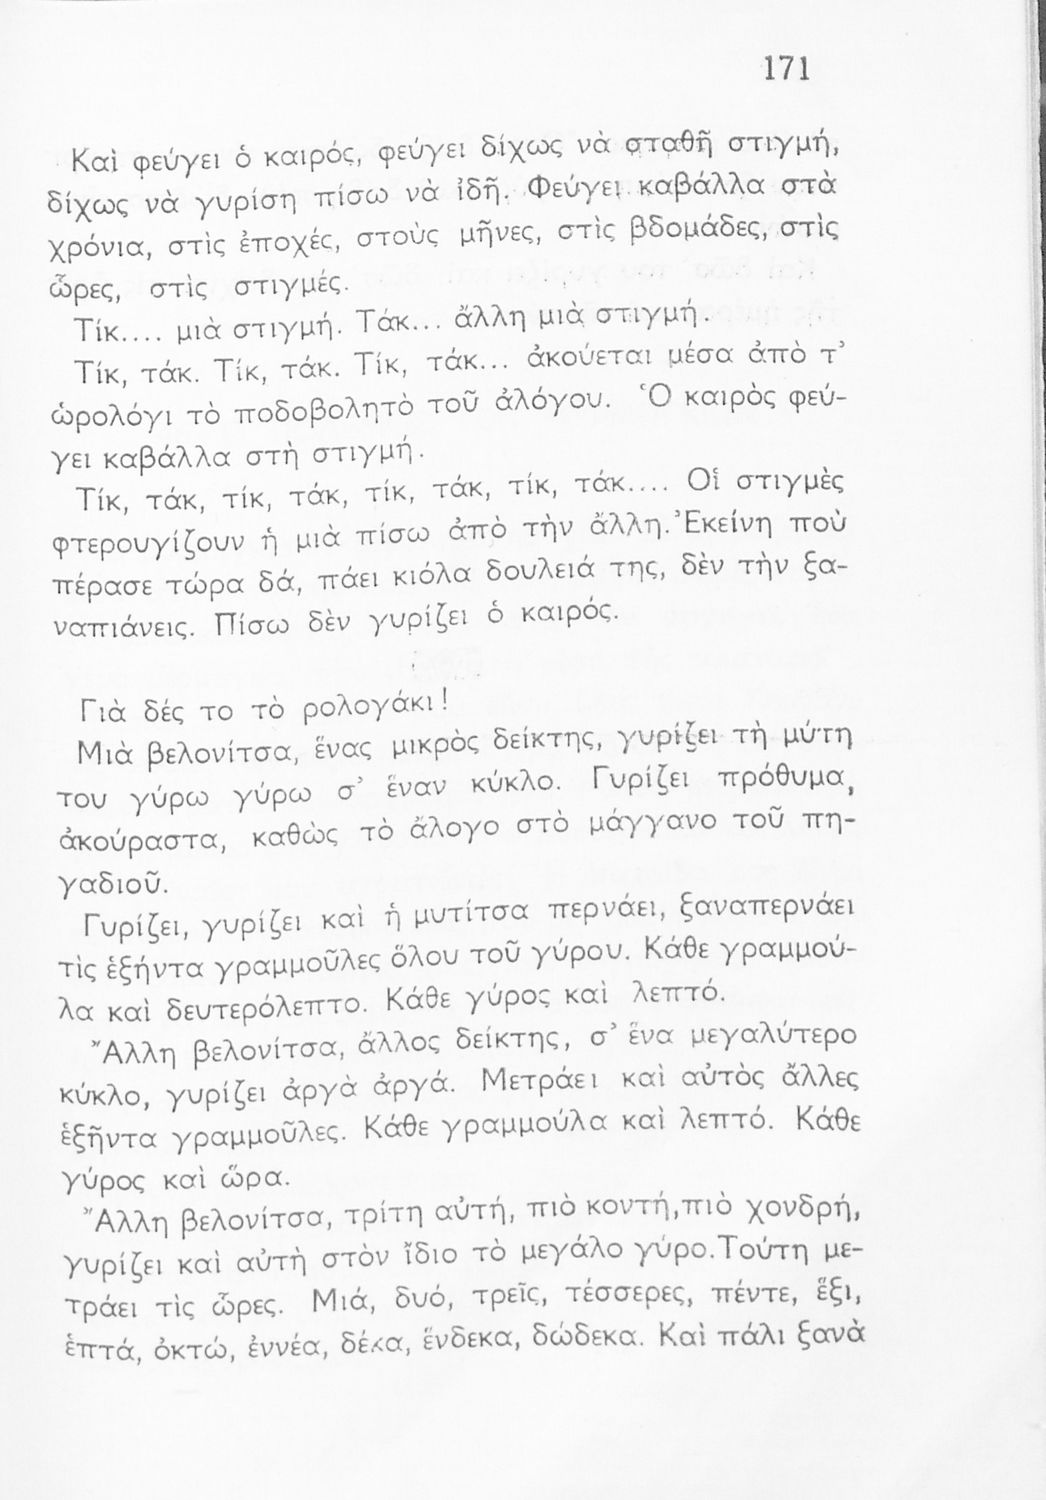 171
Καὶ φεύγει ὁ καιρός, φεύγει δίχως νὰ σταθῆ στιγμή,
δίχως νὰ γυρίση πίσω νὰ ἰδῆ. Φεύγει καβάλλα στὰ
χρόνια, στὶς ἐποχές, στοὺς μῆνες, στὶς βδομάδες, στὶς
ὧρες, στὶς στιγμές.
Τίκ.... μιὰ στιγμή. Τάκ... ἄλλη μιὰ στιγμή.
Τίκ, τάκ. Τίκ, τάκ. Τίκ, τάκ... ἀκούεται μέσα ἀπὸ τ᾿
ὡρολόγι τὸ ποδοβολητὸ τοῦ ἀλόγου. Ὁ καιρὸς φεύ-
γει καβάλλα στὴ στιγμή.
Τίκ, τάκ, τίκ, τάκ, τίκ, τάκ, τίκ, τάκ.... Οἱ στιγμὲς
φτερουγίζουν ἡ μιὰ πίσω ἀπὸ τὴν ἄλλη. Ἐκείνη ποὺ
πέρασε τώρα δά, πάει κιόλα δουλειά της, δὲν τὴν ξα-
ναπιάνεις. Πίσω δὲν γυρίζει ὁ καιρός.
Γιὰ δές το τὸ ρολογάκι!
Μιὰ βελονίτσα, ἕνας μικρὸς δείκτης, γυρίζει τὴ μύτη
του γύρω γύρω σ᾿ ἕναν κύκλο. Γυρίζει πρόθυμα,
ἀκούραστα, καθὼς τὸ ἄλογο στὸ μάγγανο τοῦ πη-
γαδιοῦ.
Γυρίζει, γυρίζει καὶ ἡ μυτίτσα περνάει, ξαναπερνάει
τὶς ἑξήντα γραμμοῦλες ὅλου τοῦ γύρου. Κάθε γραμμού-
λα καὶ δευτερόλεπτο. Κάθε γύρος καὶ λεπτό.
Ἄλλη βελονίτσα, ἄλλος δείκτης, σ᾿ ἕνα μεγαλύτερο
κύκλο, γυρίζει ἀργὰ ἀργά. Μετράει καὶ αὐτὸς ἄλλες
ἑξῆντα γραμμοῦλες. Κάθε γραμμούλα καὶ λεπτό. Κάθε
γύρος καὶ ὥρα.
Ἄλλη βελονίτσα, τρίτη αὐτή, πιὸ κοντή, πιὸ χονδρή,
γυρίζει καὶ αὐτὴ στὸν ἴδιο τὸ μεγάλο γύρο. Τούτη με-
τράει τὶς ὧρες. Μιά, δυό, τρεῖς, τέσσερες, πέντε, ἕξι,
ἑπτά, ὀκτώ, ἐννέα, δέκα, ἕνδεκα, δώδεκα. Καὶ πάλι ξανὰ